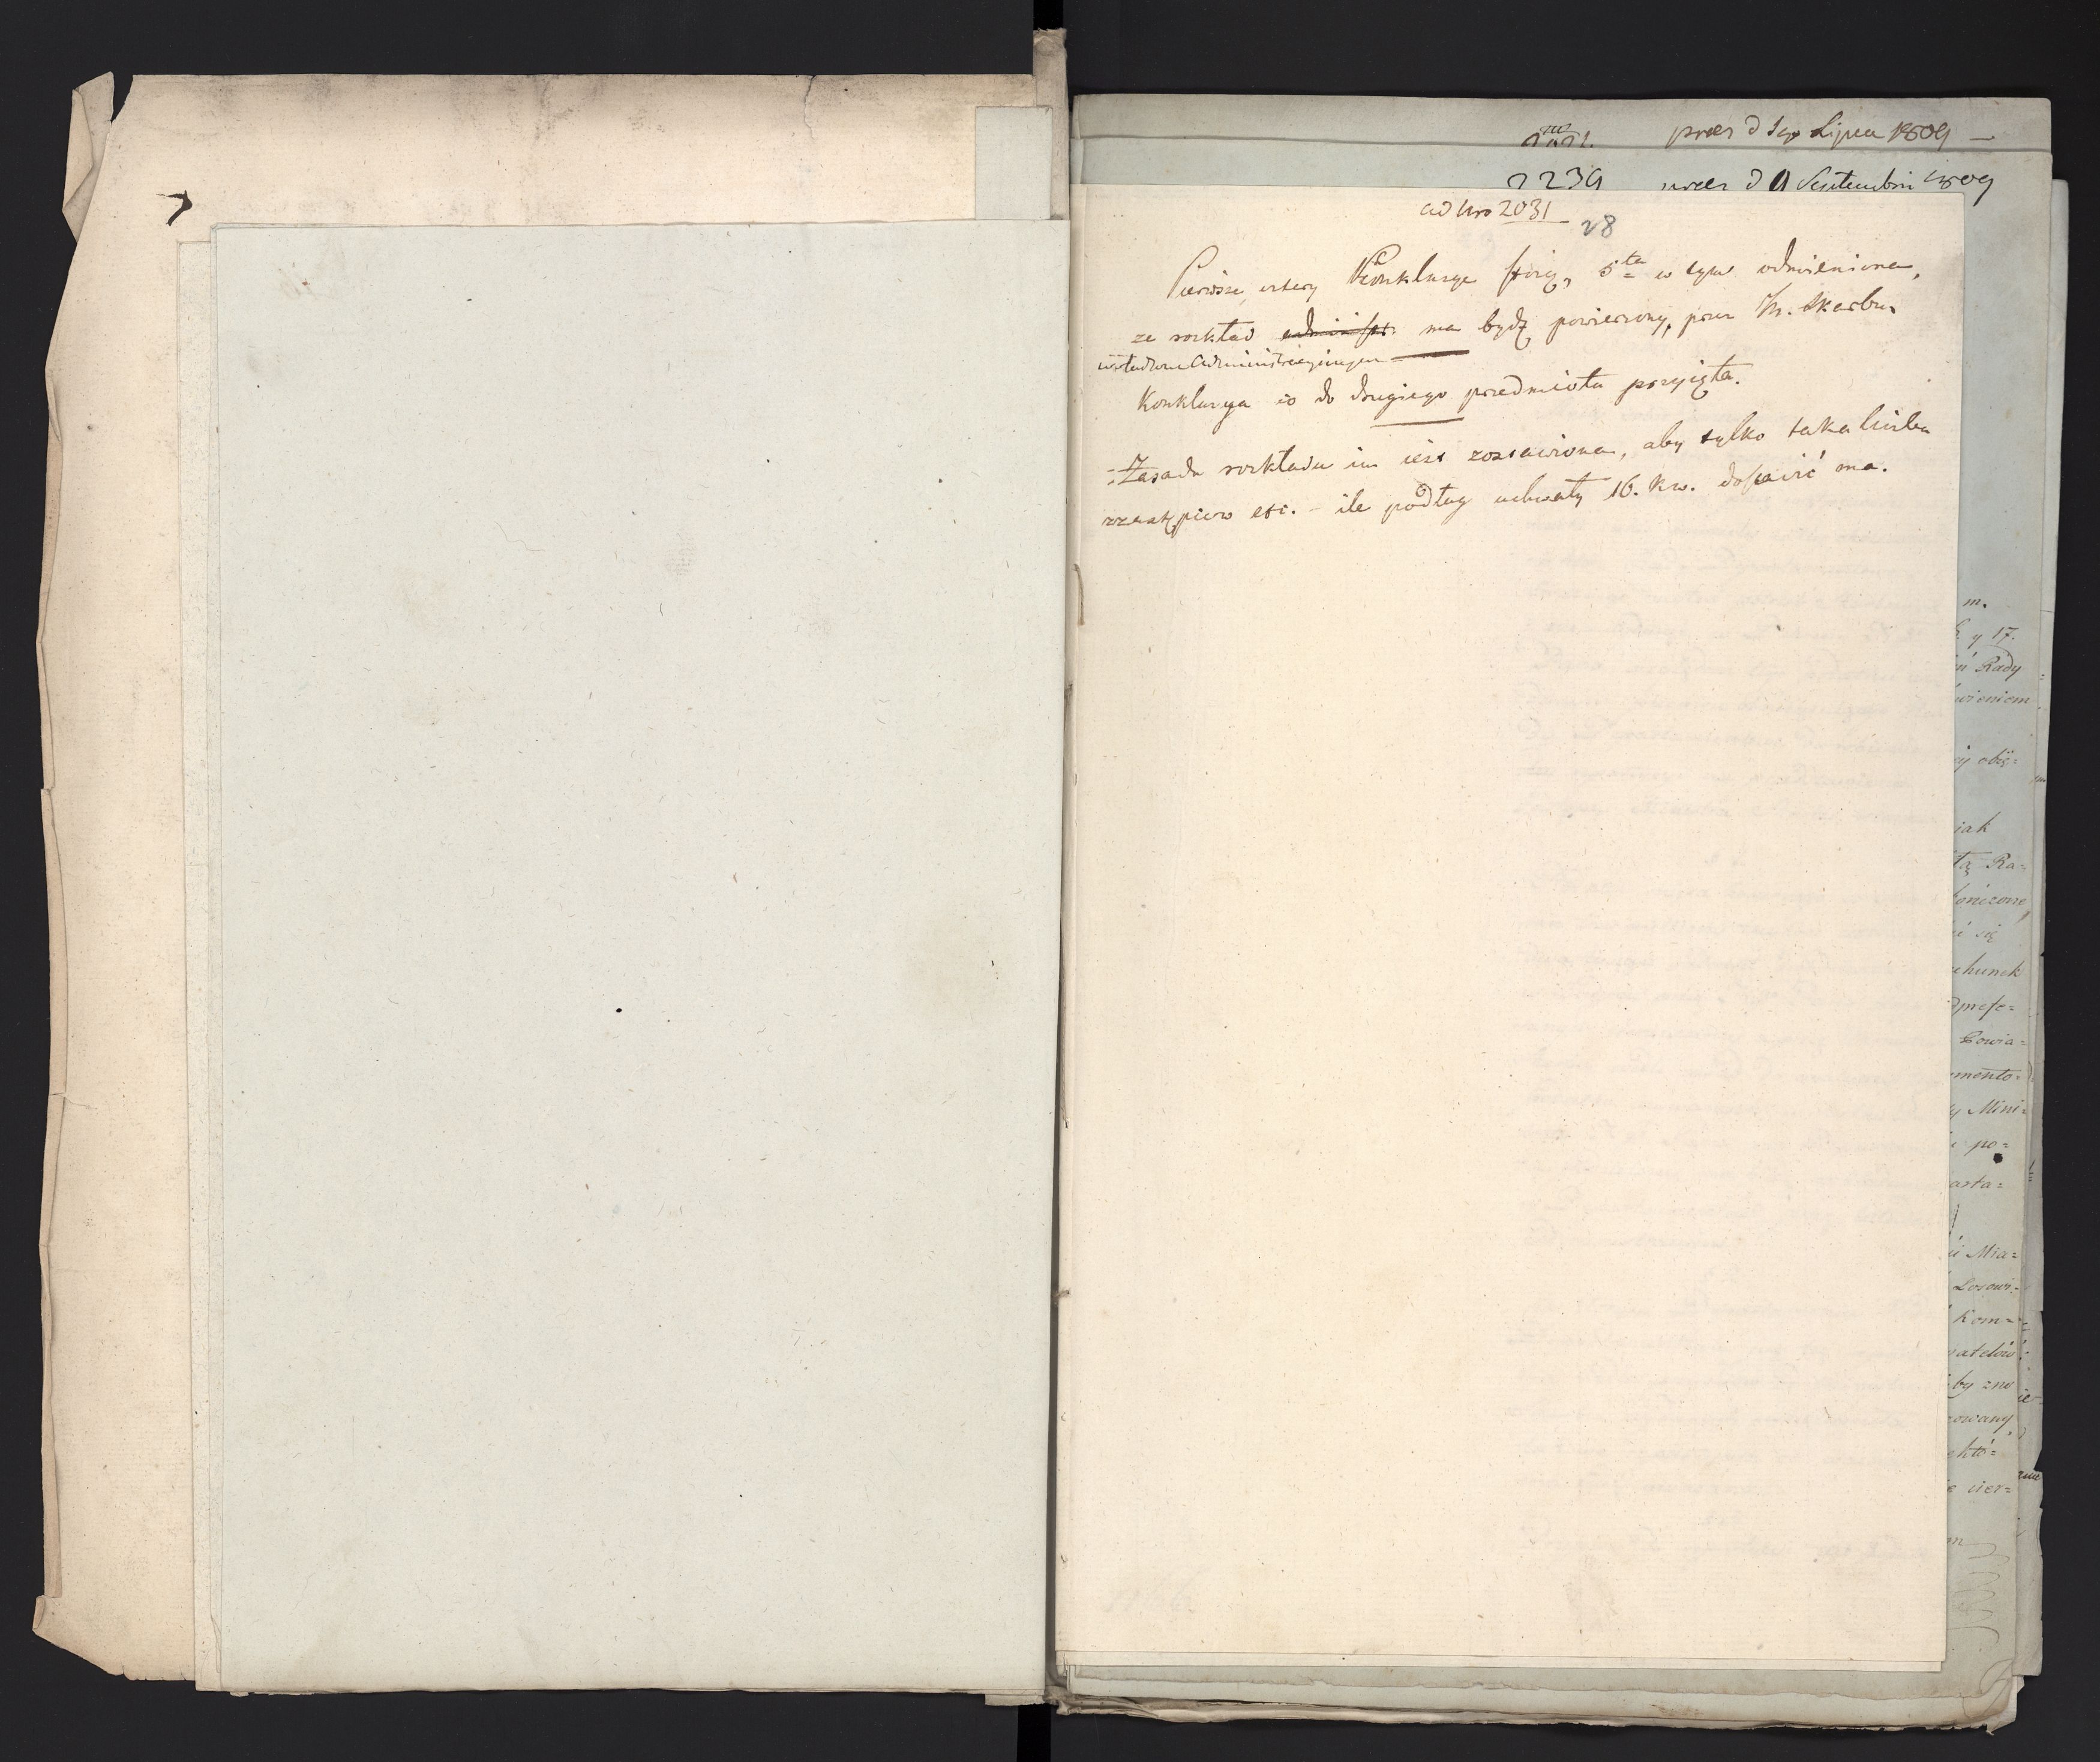 praes d 1go Lipca 1809 —
2239 praes d 9 Septembris 1809
ad Nro 2031
28
Pierwsze cztery Konkluzye stoią, 5ta w tym odmieniona,
ze rozkład administ: ma bydź powierzony, przez Mr. Skarbu,
władzom Administracyinym
Konkluzya co do drugiego przedmiotu przyięta.
Zasada rozkładu im iest zostawiona, aby tylko taka liczba
zastępców etc. – ile podług uchwały 16. Kw. dostawić ma.
m.
y 17.
Rady
wieniem
y obię=
iak
tą Ra=
kończone
się
chunek
dprefe=
Powia=
mento=
y Mini=
po=
arta=
Mia=
Losowi=
Kom=
watelów
by zno
zowany
któ=
cier=